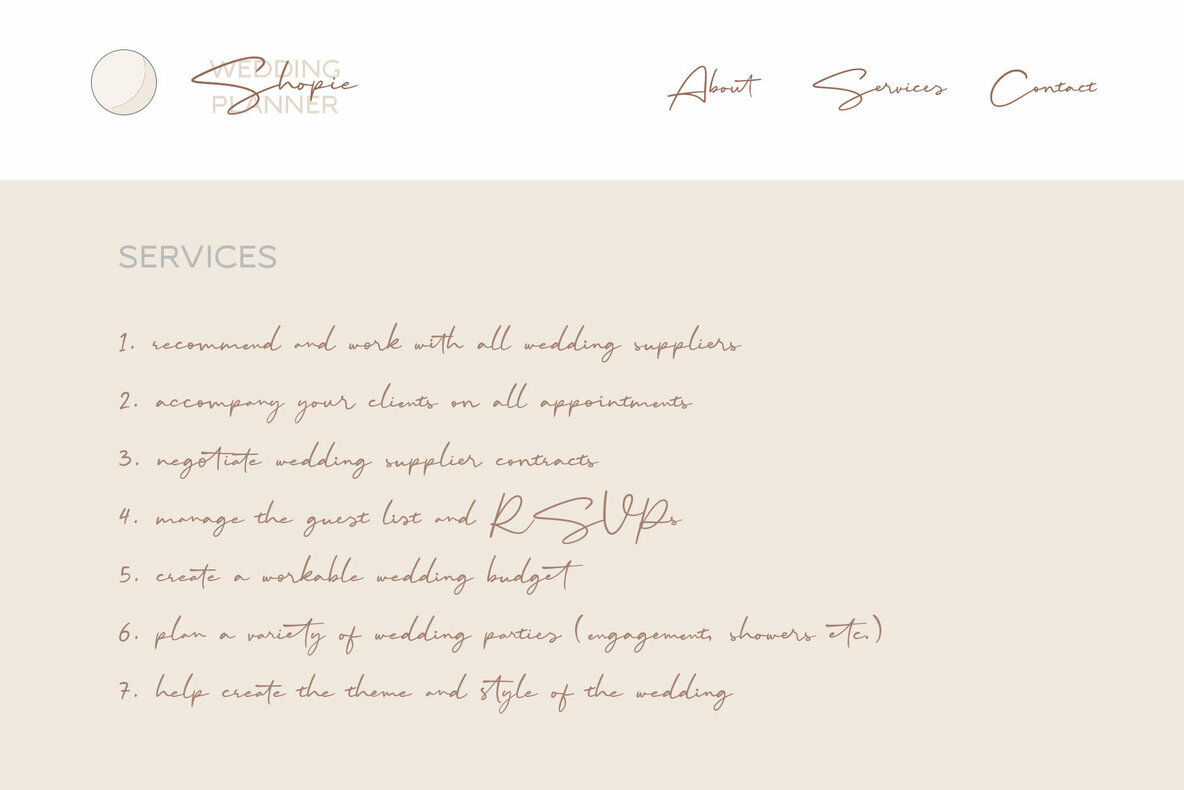 WEDDING
Shopie
PLANNER
About Services Contact
SERVICES
1. recommend and work with all wedding suppliers
2. accompany your clients on all appointments
3. negotiate wedding supplier contracts
4. manage the guest list and RSVPs
5. create a workable wedding budget
6. plan a variety of wedding parties (engagement, showers etc.)
7. help create the theme and style of the wedding